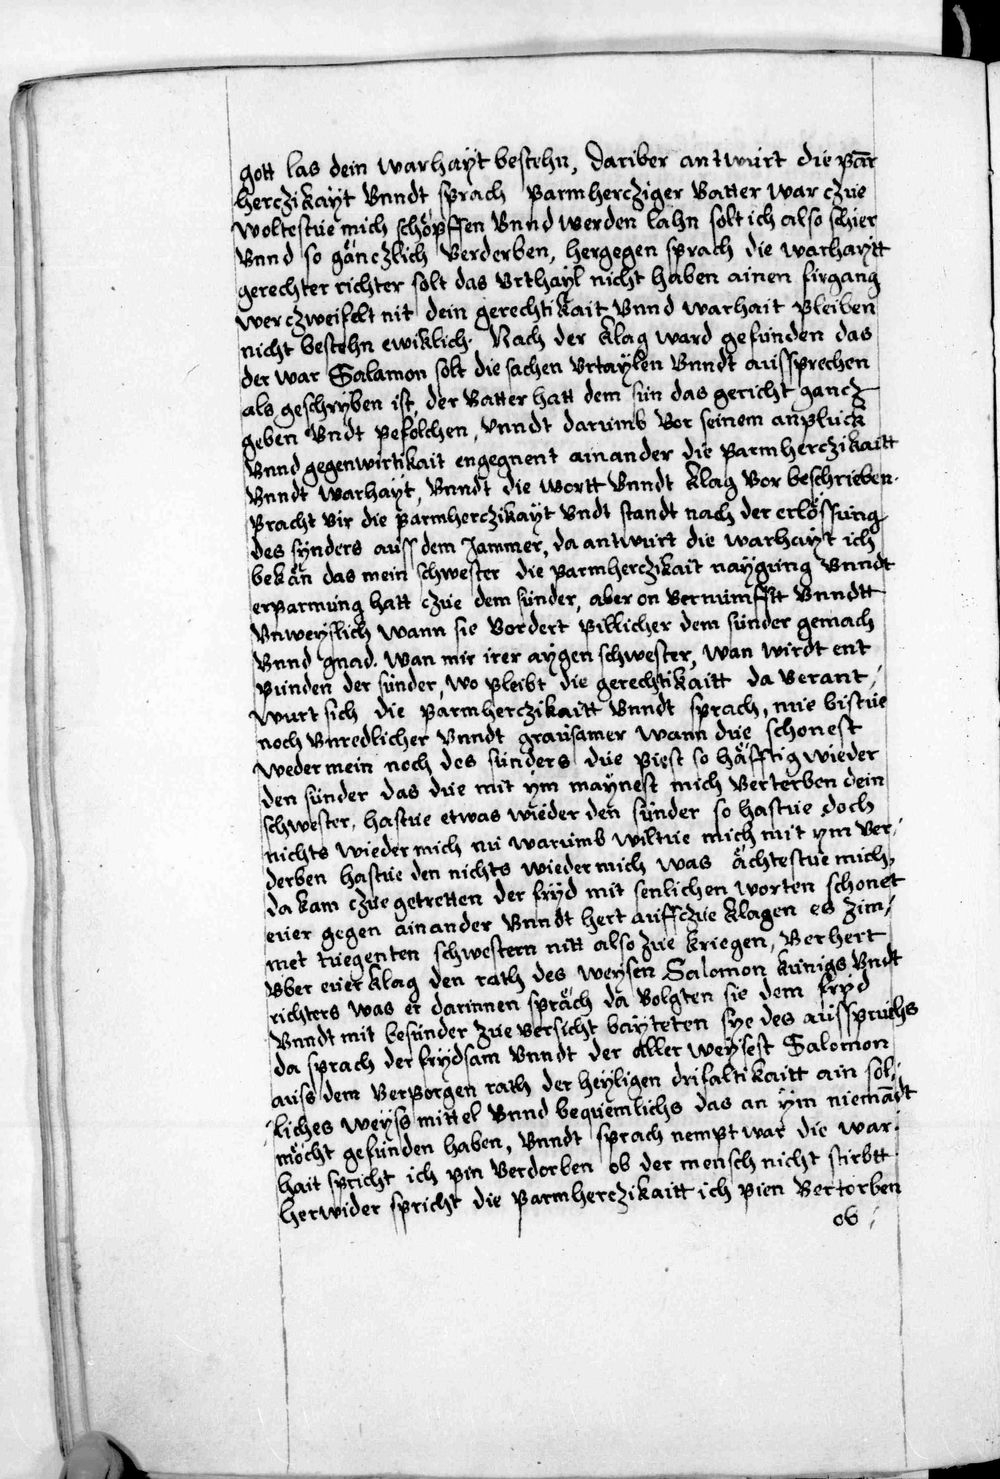 gott las dein warhaÿt bestehn, Dariber antwurt die par̄
herczikaÿt Vnndt sprach Parmhercziger Vatter war czue
woltestue mich schöpffen Vnnd werden lahn solt ich also schier
Vnnd so gänczlich Verderben, hergegen sprach die warhaÿtt
gerechter richter solt das Vrthaÿl nicht haben ainen firgang
wer czweifelt nit dein gerechtikait Vnnd warhait Pleiben
nicht bestehn ewiklich. Nach der klag ward gefunden das
der war Salamon solt die sachen Vrtaÿlen Vnndt aussprechen
als geschrÿben ist, der Vatter hatt dem sun das gericht gancz
geben Vndt Pefolchen, Vnndt darumb Vor seinem anplück
Vnnd gegenwirtikait engegnent ainander die Parmherczikaitt
Vnndt warhaÿt, Vnndt die wortt Vnndt klag Vor beschrieben.
Pracht Vir die parmherczikaÿt Vndt standt nach der erlössung
des sÿnders auss dem Jammer, da antwurt die warhaÿt ich
bekän das mein schwester die parmherczikait naÿgung Vnndt
erparmung hatt czue dem sunder, aber on Vernumfftt Vnndtt
Vnweÿslich wann sie Vordert Pillicher dem sunder gemach
Vnnd gnad. wan mir irer aÿgen schwester, wan wirdt ent
Punden der sunder, wo Pleibt die gerechtikaitt da Verant,
wurt sich die Parmherczikaitt Vnndt sprach, nue bistue
noch Vnredlicher Vnndt grausamer wann due schonest
weder mein noch des sunders due Piest so häfftig wieder
den sunder das due mit ÿm maÿnest mich Verterben dein
schwester, hastue etwas wieder den sunder so hastue doch
nichts wieder mich nu warumb wiltue mich mit ÿm Ver,
derben hastue den nichts wieder mich was ächtestue mich,
da kam czue getretten der frÿd mit senlichen worten schonet
euer gegen ainander Vnndt hert auffczue klagen es zim,
met tuegenten schwestern nitt also zue kriegen, Verhert
Vber euer klag den rath des weÿsen Salomon kunigs Vndt
richters was er darinnen spräch da Volgten sie dem frÿd
Vnndt mit besunder zue Versicht baÿteten sÿe des ausspruchs
da sprach der frÿdsam Vnndt der aller weÿsest Salomon
auss dem Verporgen rath der heÿligen drifaltikaitt ain söl,
liches weÿss mittel Vnnd bequemlichs das an ÿm niemandt
möcht gefunden haben, Vnndt sprach nempt war die war,
hait spricht ich pin Verdorben ob der mensch nicht stirbtt
herwider spricht die Parmherczikaitt ich pien Vertorben
ob,